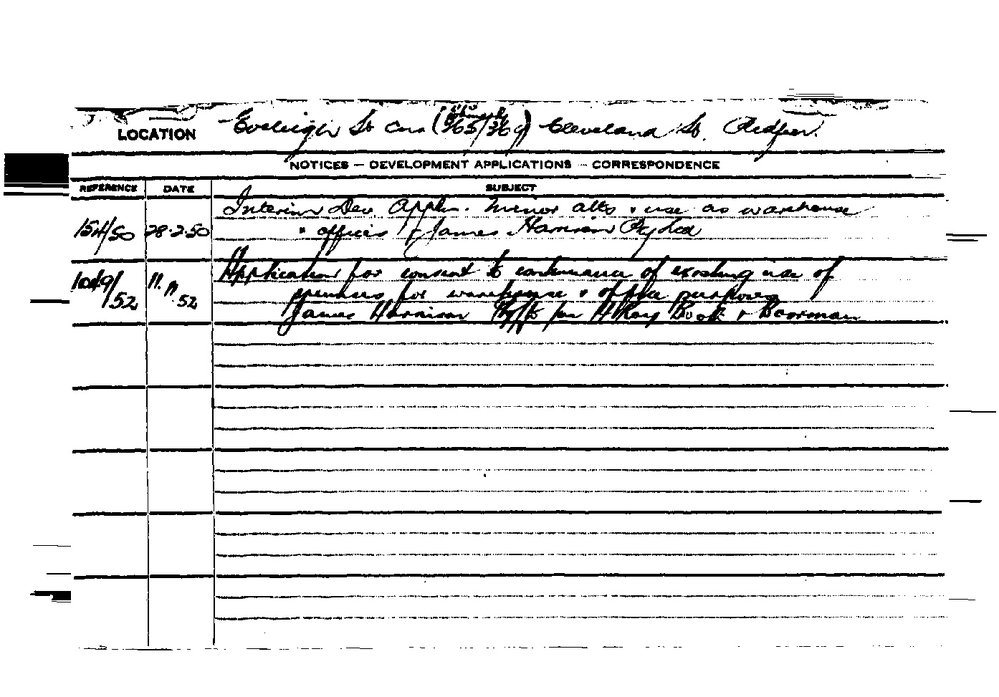 LOCATION Eveleigh St Cnr (365/369) Cleveland St. Redfern.
NOTICES – DEVELOPMENT APPLICATIONS – CORRESPONDENCE
REFERENCE DATE SUBJECT
154/50 28-2-50 Interim Dev. Applin. Minor alts & use as warehouse
& offices James Harrison Pty Ltd
1049/52 11. 11. 52 Application for consent to continuance of existing use of
premises for warehouse & office purposes
James Harrison P/L per Book & Boorman